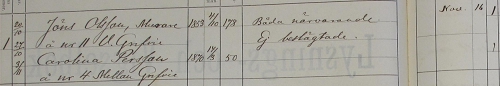 20/10 Jöns Olsson, Murare 1853 4/10 178 Båda närvarande Nov. 16 1
1 27/10 å nr 11 V. Grefvie Ej beslägtade.
Carolina Persson 1870 14/3 50
3/11 å nr 4 Mellan Grefvie